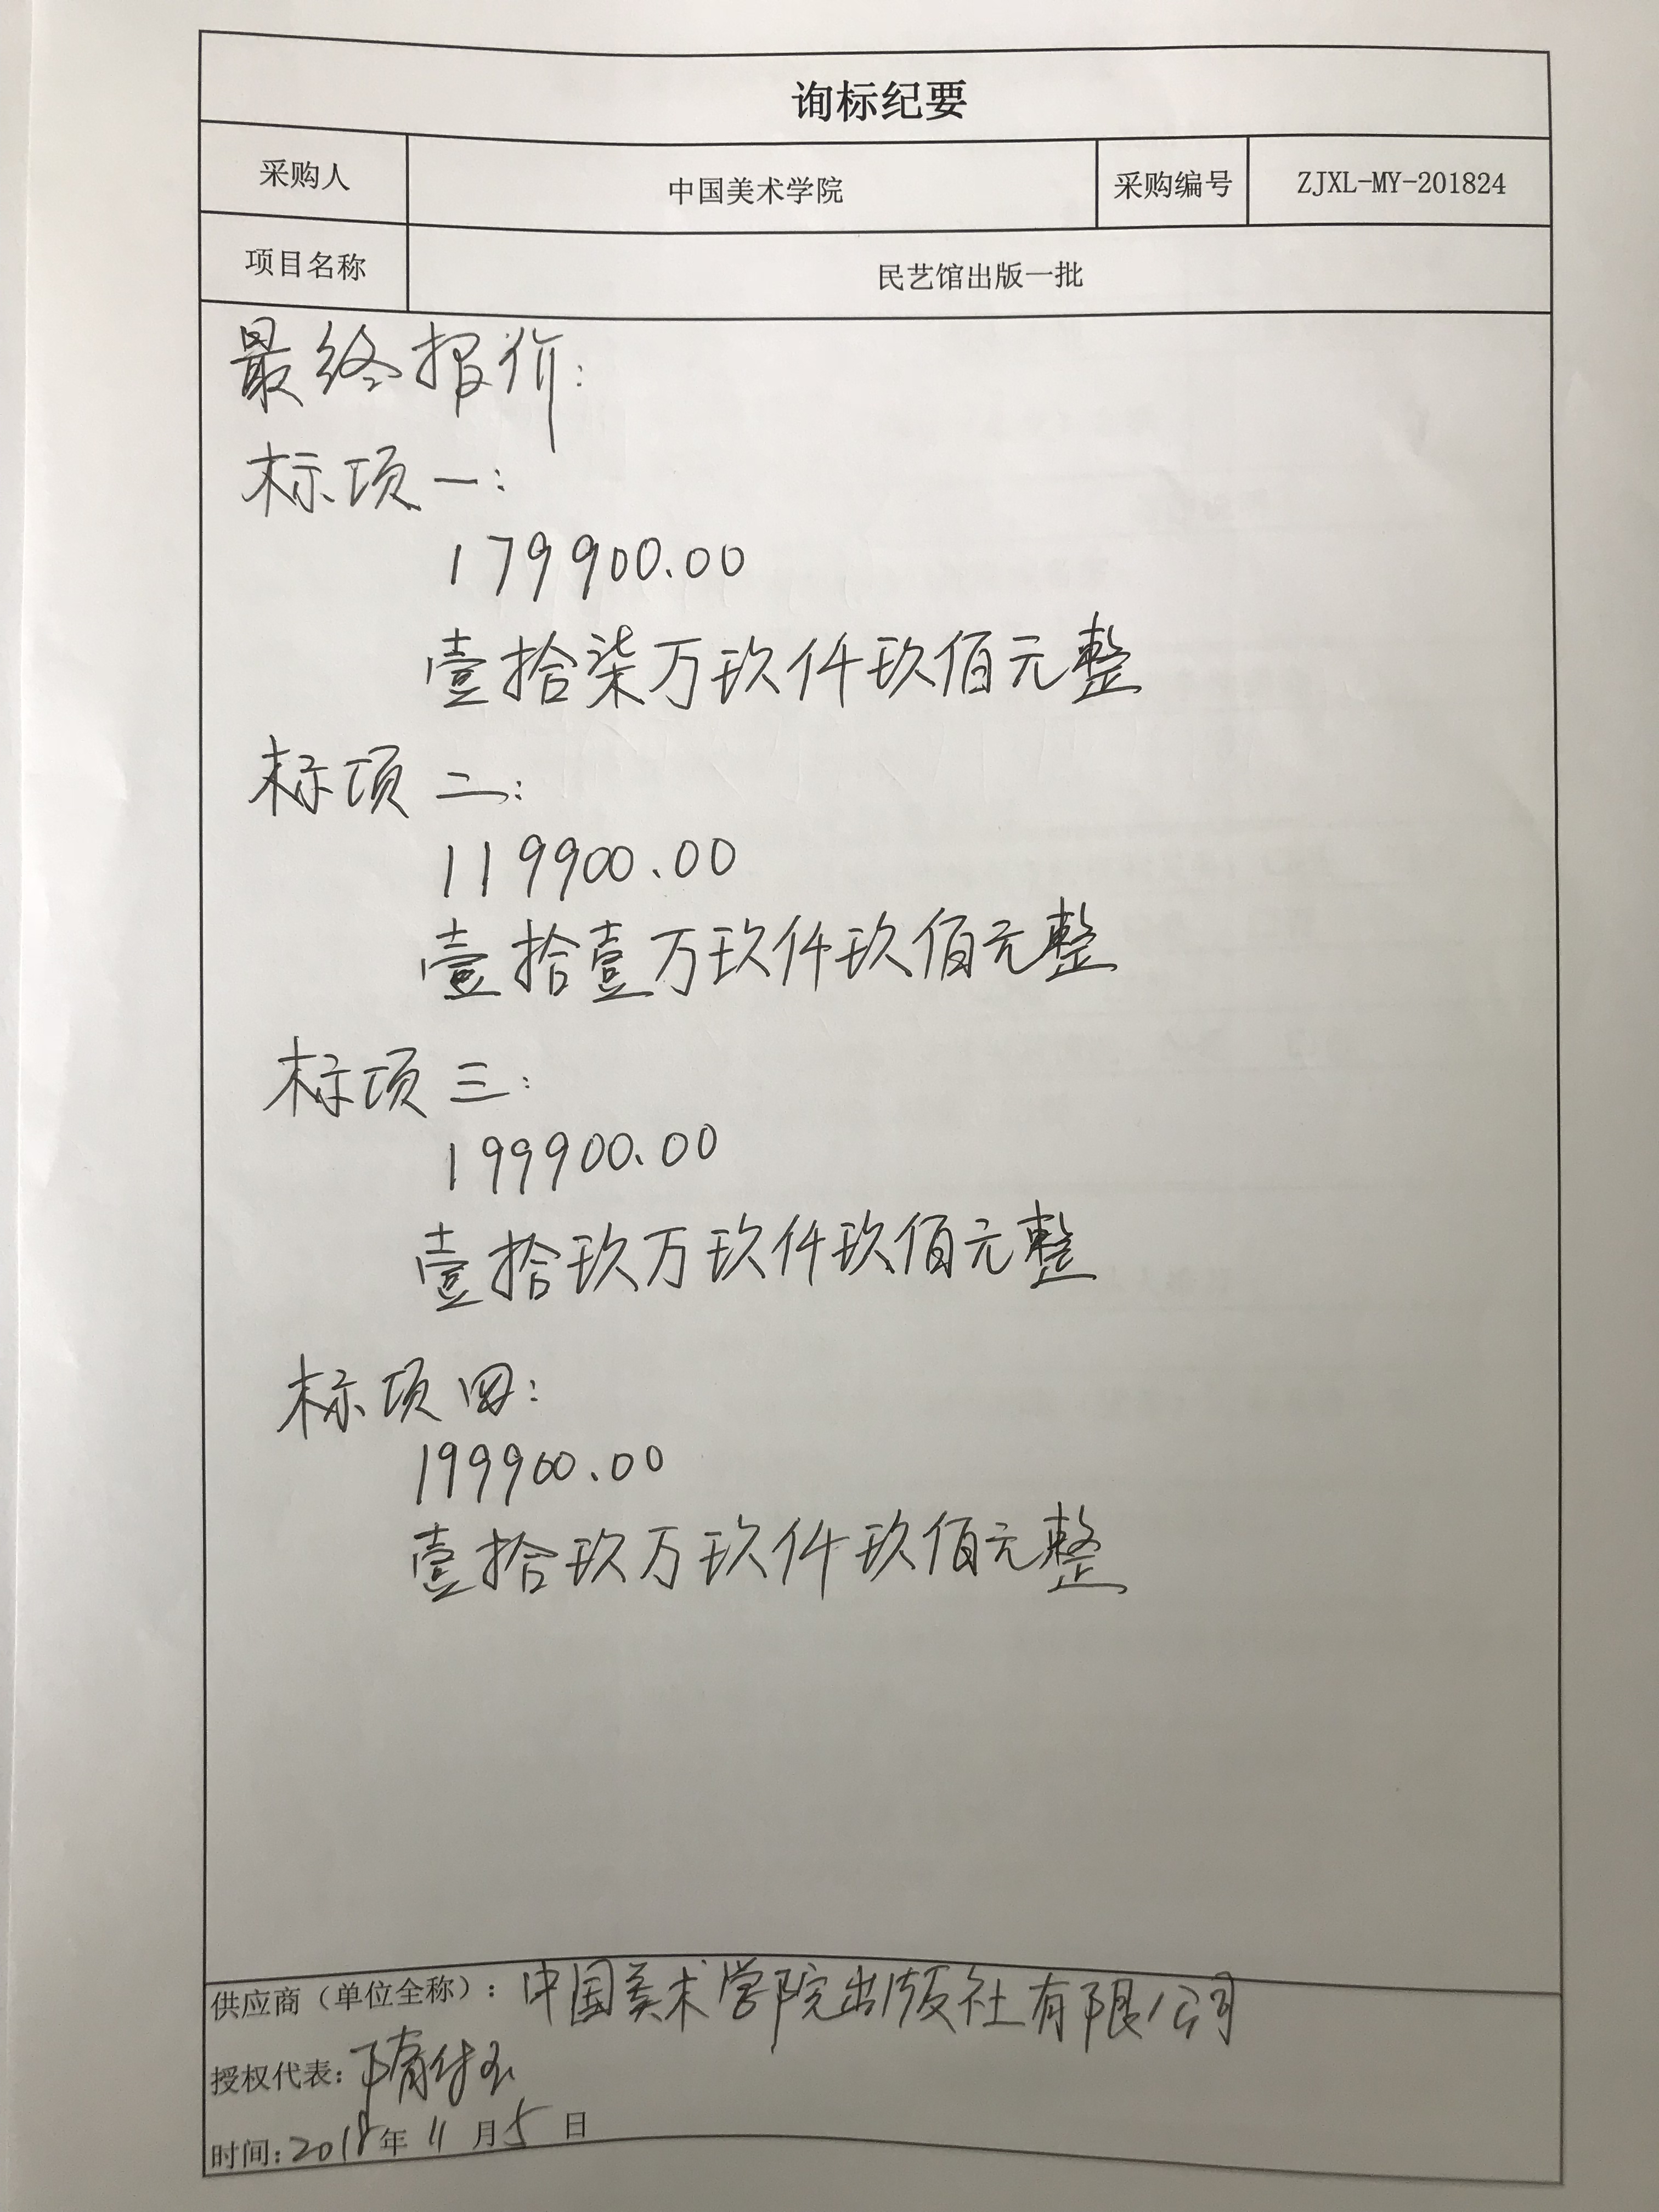 询标纪要
采购人 中国美术学院 采购编号 ZJXL-MY-201824
项目名称 民艺馆出版一批
最终报价:
标项一:
179900.00
壹拾柒万玖仟玖佰元整
标项二:
119900.00
壹拾壹万玖仟玖佰元整
标项三:
199900.00
壹拾玖万玖仟玖佰元整
标项四:
199900.00
壹拾玖万玖仟玖佰元整
供应商（单位全称）：中国美术学院出版社有限公司
授权代表:
时间:2018年11月5日